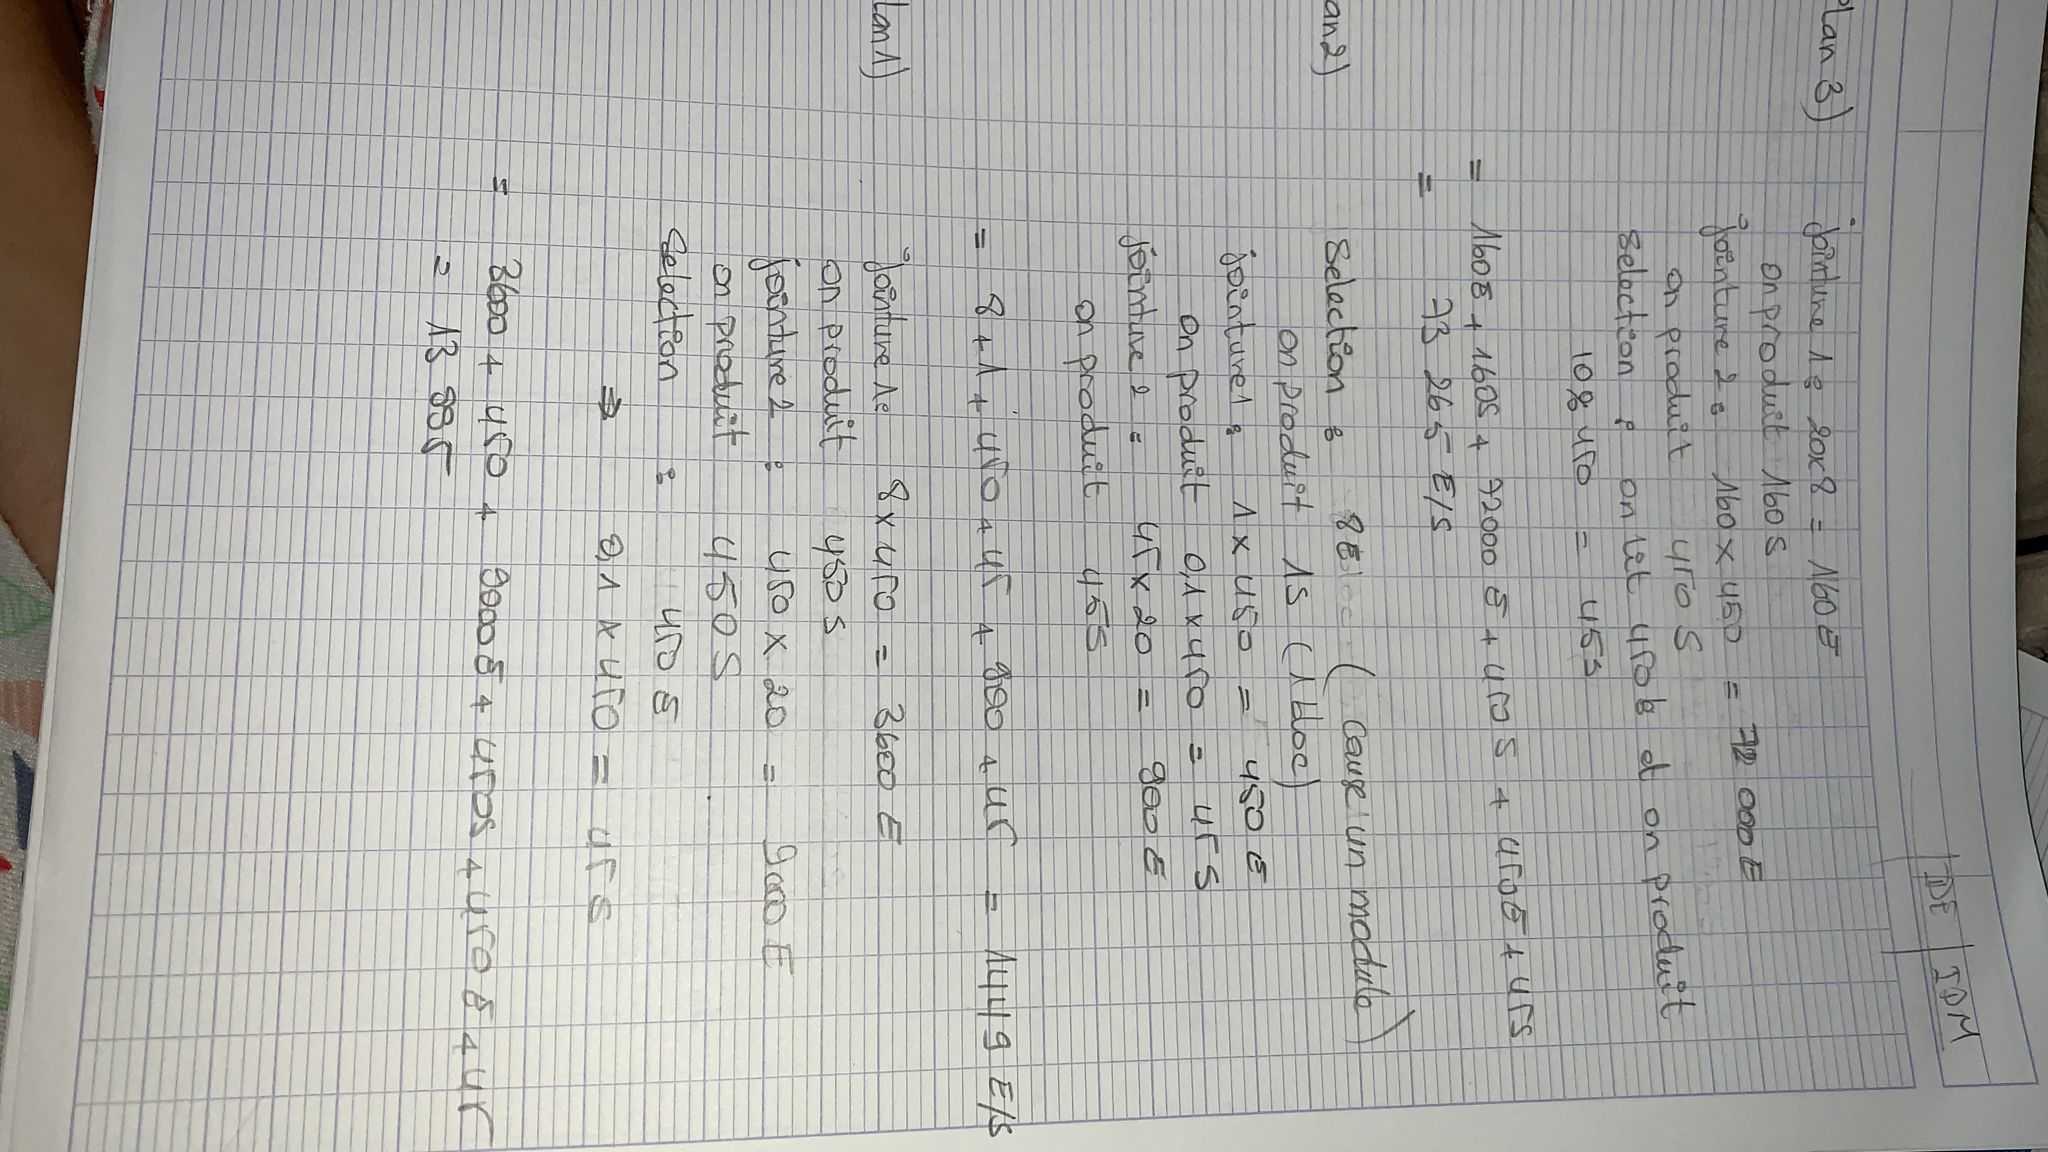 DE IDM
Plan 3) jointure 1 : 20x8 = 160 E
on produit 160 S
jointure 2 : 160 x 450 = 72 000 E
on produit 450 S
Selection : on lit 450 b d on produit
10% 450 = 45 s
= 160E + 160S + 72000 E + 450 S + 450E + 45S
= 73 265 E/S
an2) Selection : 8E (cause un module)
on produit 1S (1 bloc)
jointure 1 : 1 x 450 = 450 E
on produit 0,1 x 450 = 45 S
jointure 2 : 45 x 20 = 900 E
on produit 45S
= 8 + 1 + 450 + 45 + 900 + 45 = 1449 E/S
lan1) jointure 1 : 8 x 450 = 3600 E
on produit 450 S
jointure 2 : 450 x 20 = 9000 E
on produit 450 S
Selection : 450 E
⇒ 0,1 x 450 = 45 S
= 3600 + 450 + 9000E + 450S + 450 E + 45
= 13 995